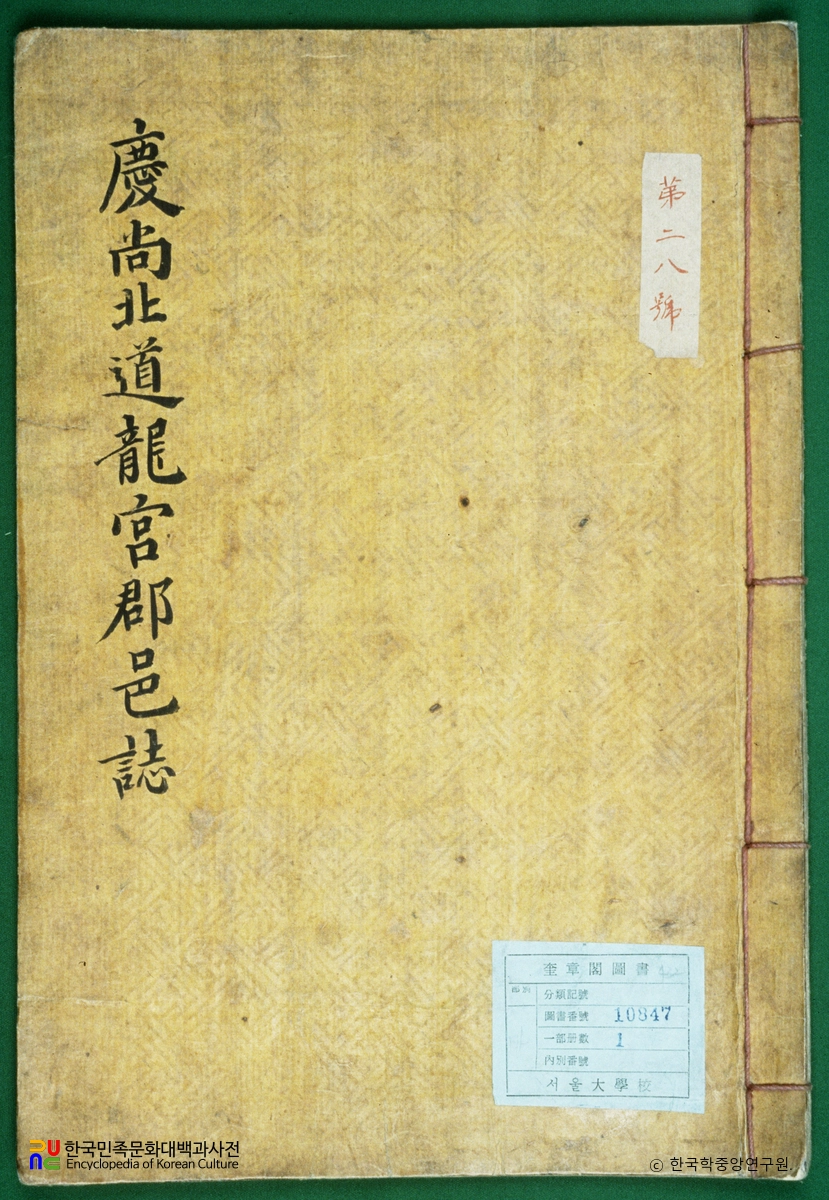 慶尙北道龍宮郡邑誌
第二八號
奎章閣圖書
部別
分類記號
圖書番號 10847
一部册數 1
內別番號
서울大學校
한국민족문화대백과사전
Encyclopedia of Korean Culture
© 한국학중앙연구원.